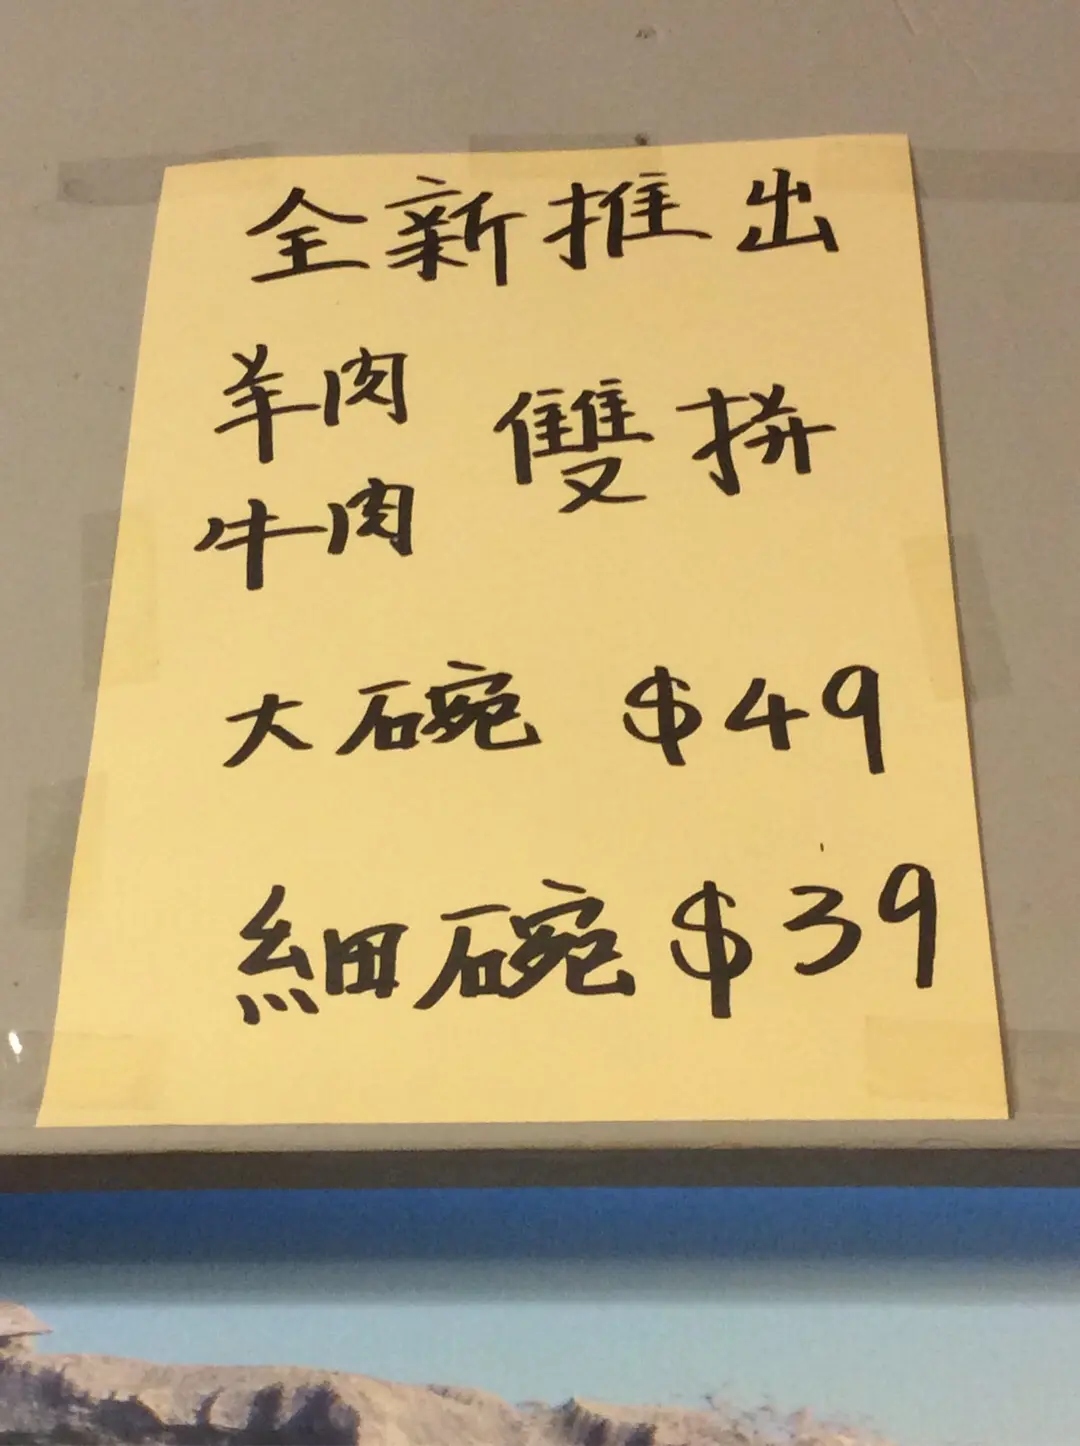 全新推出
羊肉
雙拼
牛肉
大碗 $49
細碗 $39